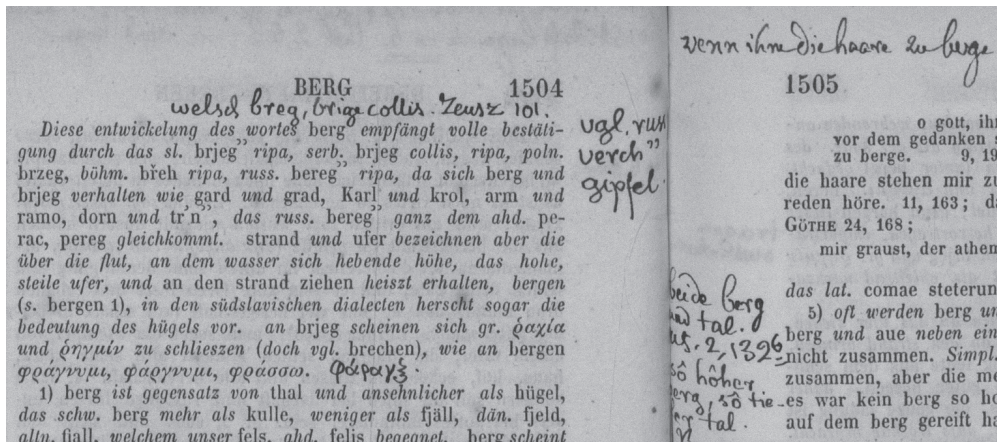 BERG 1504
welsch breg, brige collis. Zeusz 101.
Diese entwickelung des wortes berg empfängt volle bestäti-
gung durch das sl. brjeg” ripa, serb. brjeg collis, ripa, poln.
brzeg, böhm. břeh ripa, russ. bereg” ripa, da sich berg und
brjeg verhalten wie gard und grad, Karl und krol, arm und
ramo, dorn und tr’n”, das russ. bereg” ganz dem ahd. pe-
rac, pereg gleichkommt. strand und ufer bezeichnen aber die
über die flut, an dem wasser sich hebende höhe, das hohe,
steile ufer, und an den strand ziehen heiszt erhalten, bergen
(s. bergen 1), in den südslavischen dialecten herscht sogar die
bedeutung des hügels vor. an brjeg scheinen sich gr. ῥαχία
und ῥηγμίν zu schlieszen (doch vgl. brechen), wie an bergen
φράγνυμι, φάργνυμι, φράσσω. φάραγξ.
1) berg ist gegensatz von thal und ansehnlicher als hügel,
das schw. berg mehr als kulle, weniger als fjäll, dän. fjeld,
altn. fiall, welchem unser fels, ahd. felis begegnet. berg scheint
vgl. russ
verch”
gipfel.
wenn ihne die haare zu berge
1505
o gott, ihr
vor dem gedanken
zu berge. 9, 19
die haare stehen mir zu
reden höre. 11, 163; da
GÖTHE 24, 168;
mir graust, der athen
das lat. comae steterun
5) oft werden berg un
berg und aue neben ein
nicht zusammen. Simpl.
zusammen, aber die me
es war kein berg so ho
auf dem berg gereift ha
beide berg
tal.
2,1326
sô höher
berg, sô tie-
tal.